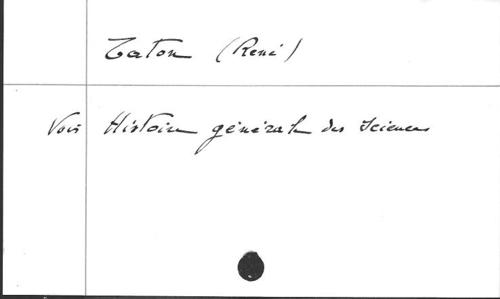 Taton (René)
Voir Histoire générale des Sciences